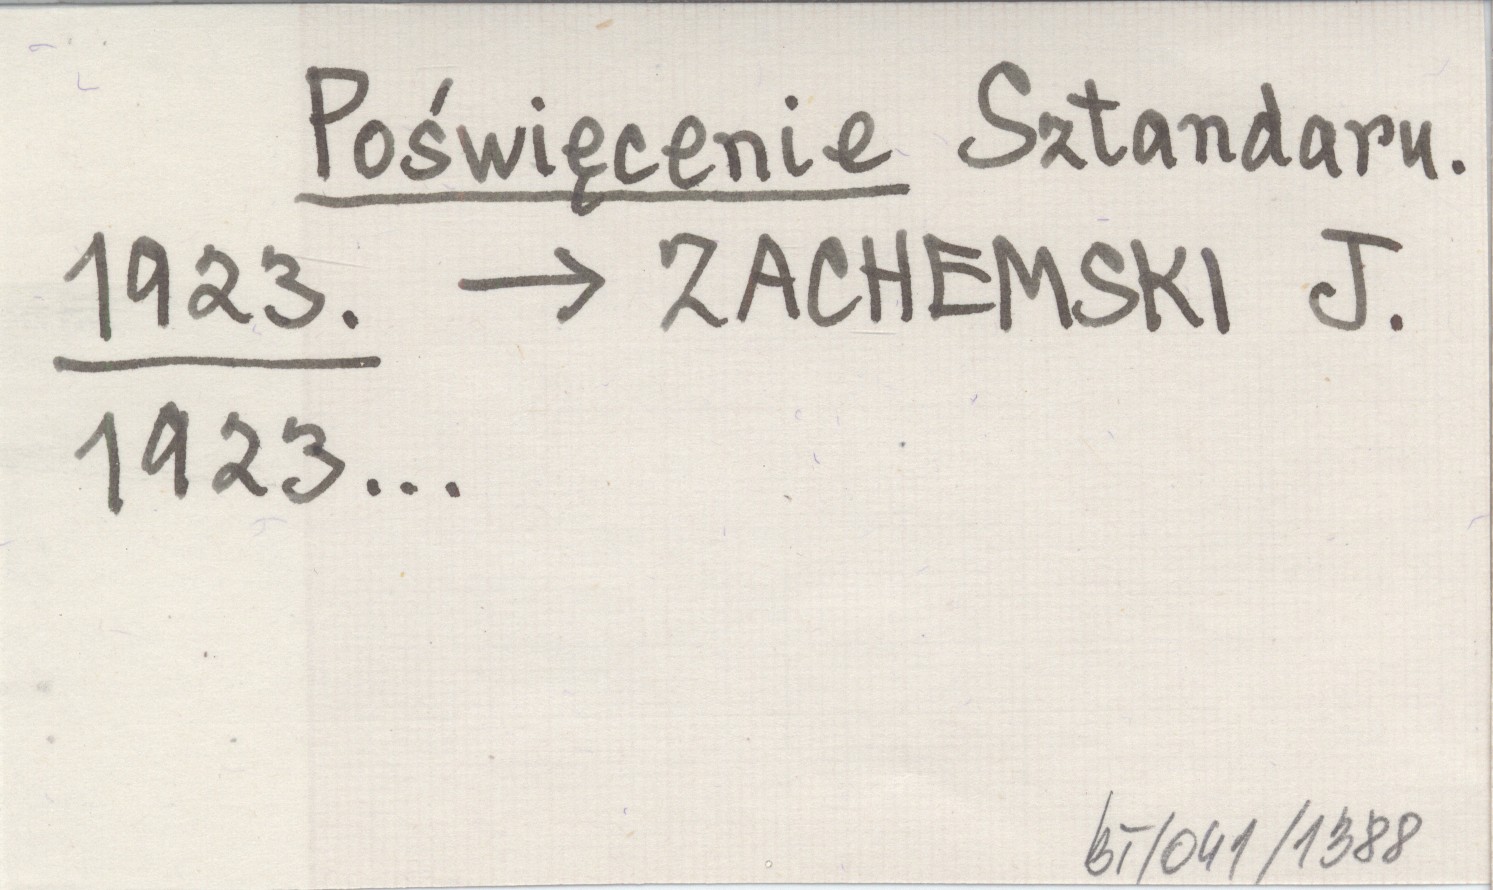 Poświęcenie Sztandaru.
1923. → ZACHEMSKI J.
1923...
bT/041/1388